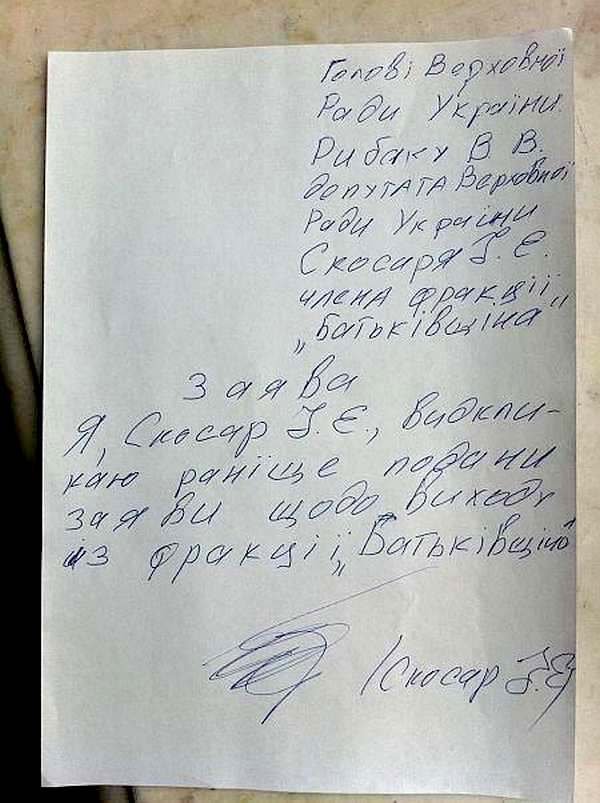 Голові Верховної
Ради України.
Рибаку В. В.
депутата Верховної
Ради України
Скосаря І. Є.
члена фракції
„Батьківщіна"
Заява
Я, Скосар І. Є., видкли-
каю раніще подани
заяви щодо виходу
із фракції „Батьківщіна"
/Скосар І.Є/